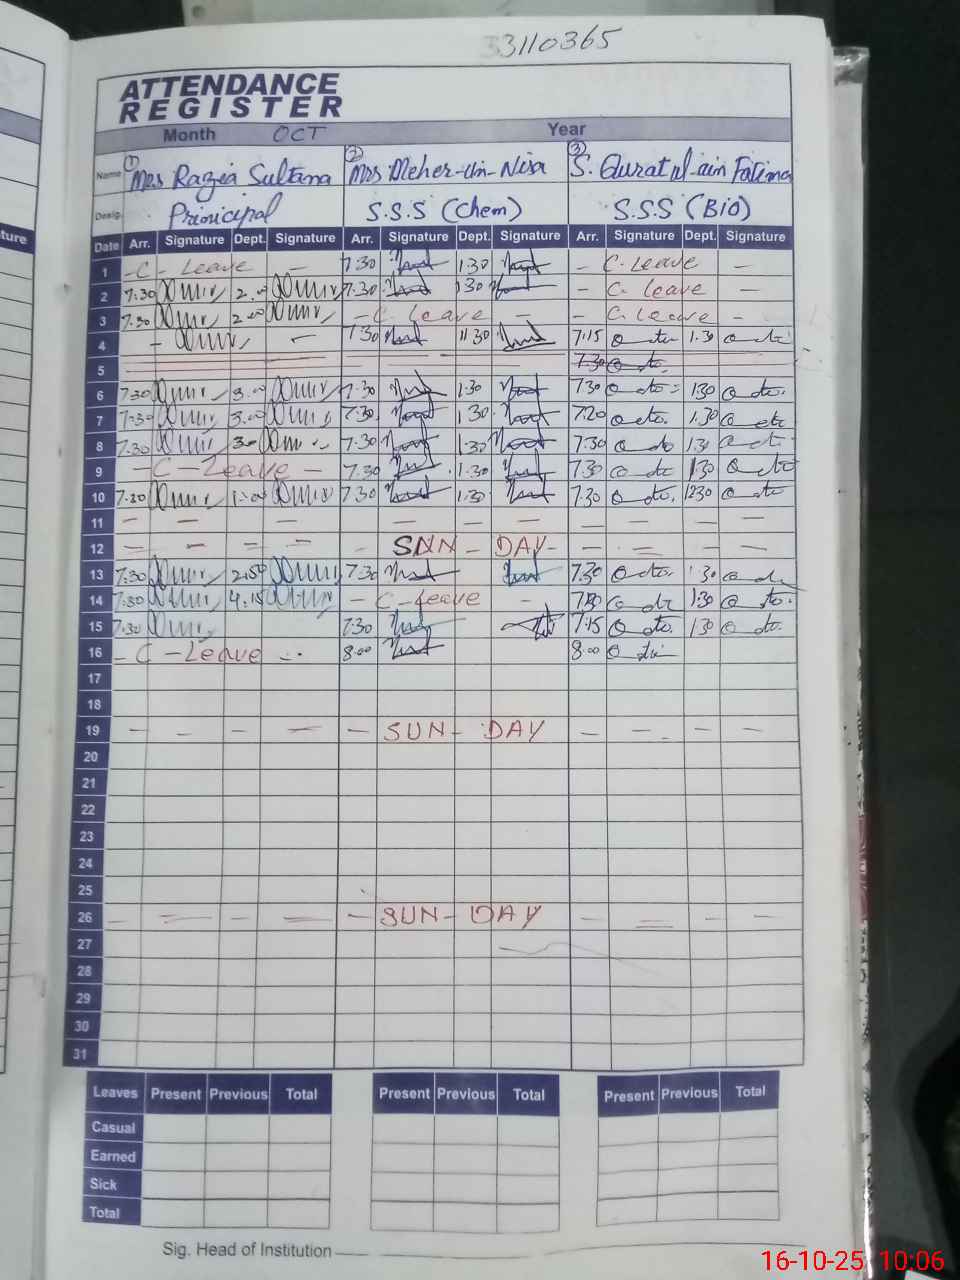 33110365
ATTENDANCE
REGISTER
Month OCT Year
Name ① Mrs Razia Sultana ② Mrs Meher-un-Nisa ③ S. Quratul-ain Fatima
Desig. Prinicipal S.S.S (Chem) S.S.S (BIO)
Date Arr. Signature Dept. Signature Arr. Signature Dept. Signature Arr. Signature Dept. Signature
1 - C - Leave - 7 30 1 30 - C. Leave -
2 7:30 2.00 7.30 1 30 - C. Leave -
3 7:30 2.00 - C. Leave - - C. Leave -
4 - - 7 30 11 30 7:15 1.30
5 7.30
6 7:30 3.00 7.30 1.30 7.30 1 30
7 7:30 3.00 7.30 1 30 7.20 1.30
8 7:30 7.30 1.30 7.30 1 30
9 - C - Leave - 7.30 1.30 7.30 1 30
10 7.20 1.00 7.30 1.30 7.30 1230
11 - - - - - - - - - -
12 - - - - SUN - DAY - - - - -
13 7:30 2.50 7.30 7.30 1 30
14 7:30 4.15 - C - Leave - 1:30
15 7.30 7.30 7.15 1 30
16 - C - Leave - 8.00 8.00
17
18
19 - - - - - SUN - DAY - - - -
20
21
22
23
24
25
26 - - - - - SUN - DAY - - - -
27
28
29
30
31
Leaves Present Previous Total Present Previous Total Present Previous Total
Casual
Earned
Sick
Total
Sig. Head of Institution
16-10-25 10:06
ture